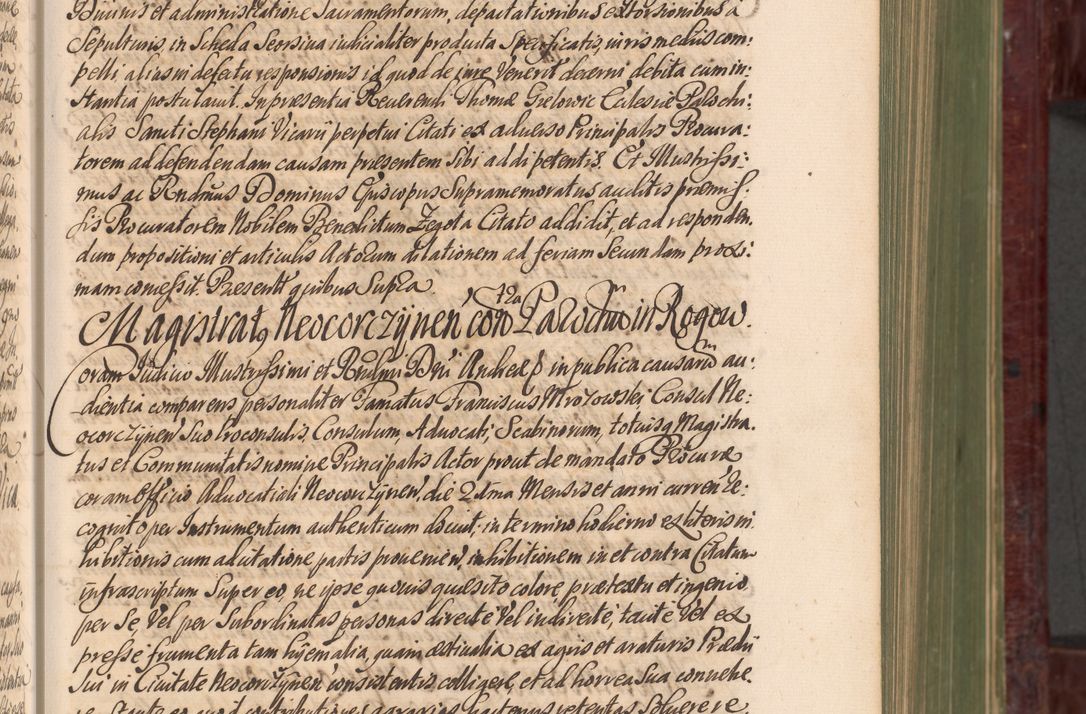 Divinis et administratione Sacramentorum, depactationibus extorsionibus a
Sepulturis, in Scheda Seorsiva iudicialiter producta Specificatis, iuris mediis com:
pelli, alias in defectu responsionis id quod de jure Venerit decerni debita cum in:
stantia postulavit. In præsentia Reverendi Thomæ Grelowic Ecclesiæ Parochi:
alis Sancti Stephani Vicarii perpetui Citati ex adverso Principalis Procura:
torem ad defendendam causam præsentem Sibi addi petentis. Et Illustrissi:
mus ac Rndmus Dominus Episcopus Supramemoratus auditis præmis:
sis Procuratorem Nobilem Benedictum Zegota Citato addidit, et ad responden
dum propositioni et articulis Actorum dilationem ad feriam Secundam proxi:
mam concessit. Præsentt quibus Supra.
Magistratq Neocorczynen con tra Parochum in Rogow.
Coram Iudicio Illustrissimi et Rndmi Dni Andreæ in publica causarum au:
dientia comparens personaliter Famatus Franciscus Mrozowski Consul Ne:
ocorczynen Suo Proconsulis, Consulum, Advocati, Scabinorum, totiusq Magistra
tus et Communitatis nomine Principalis Actor prout de mandato Procuræ
coram Officio Advocatiali Neocorczynen, die 2dma Mensis et anni curren Re:
cognito per Instrumentum authenticum docuit, in termino hodierno ex literis in
hibitionis cum adcitatione partis provenien, inhibitionem in et contra Citatum
infrascriptum Super eo, ne ipse quovis quæsito colore, prætextu et ingenio
per Se, Vel per Subordinatas personas directe Vel indirecte, tacite Vel ex
presse frumenta tam hyemalia, quam æstivalia ex agris et araturis Prædii
Sui in Civitate Neocorczynen consistentis colligere, et ad horrea Sua convehe
re, Stante eo quod contributiones hactenus retentas Solvere